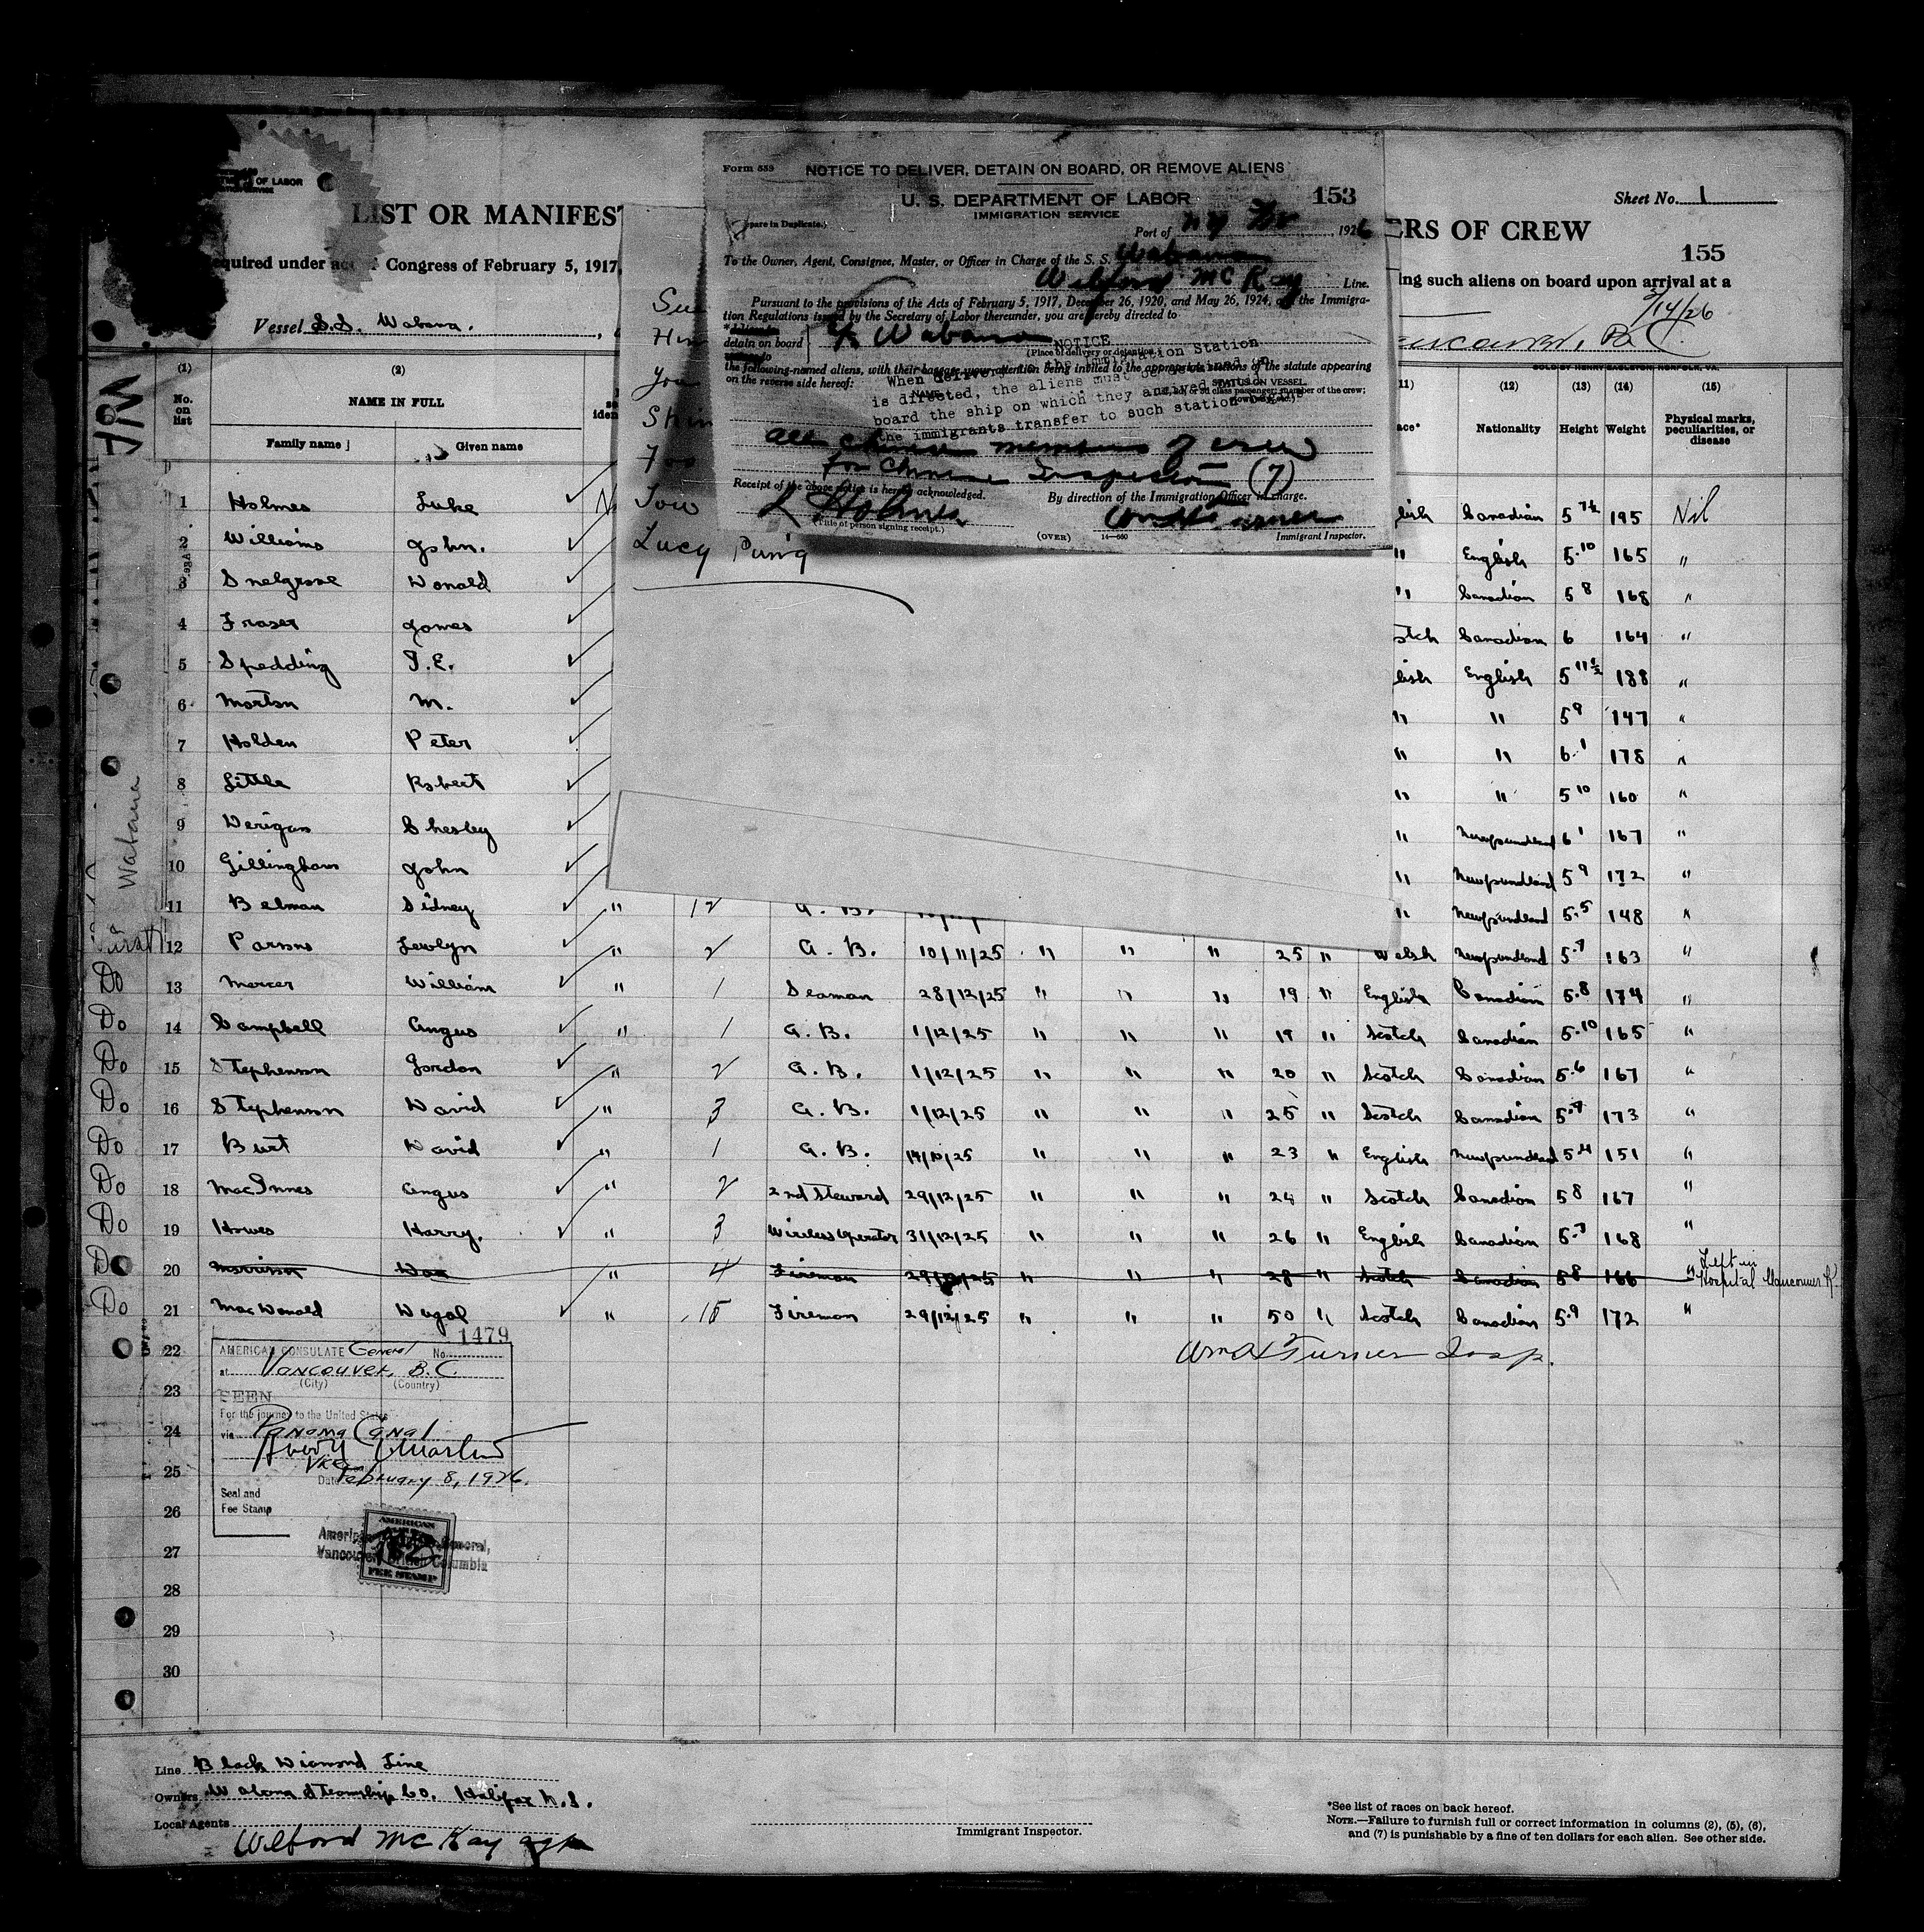 OF LABOR
LIST OR MANIFEST
ERS OF CREW
Sheet No. 1
155
equired under act of Congress of February 5, 1917,
ing such aliens on board upon arrival at a
Vessel S.S. Wabana.
3/14/26
Form 559 NOTICE TO DELIVER, DETAIN ON BOARD, OR REMOVE ALIENS
U. S. DEPARTMENT OF LABOR 153
IMMIGRATION SERVICE
Port of 1926
To the Owner, Agent, Consignee, Master, or Officer in Charge of the S. S. Wabana
Wilford McKay Line.
Pursuant to the provisions of the Acts of February 5, 1917, December 26, 1920, and May 26, 1924, and the Immigra-
tion Regulations issued by the Secretary of Labor thereunder, you are hereby directed to
detain on board
Wabana
(Place of delivery or detention.)
the following-named aliens, with their baggage, your attention being invited to the appropriate sections of the statute appearing
on the reverse side hereof:
NOTICE
When delivery to the Immigration Station
is directed, the aliens must be retained on
board the ship on which they arrived until
the immigrants transfer to such station begins
STATUS ON VESSEL
all Chinese members of crew
for Chinese Inspection (7)
Receipt of the above notice is hereby acknowledged. By direction of the Immigration Officer in Charge.
L Holmes Wm H Turner
(Title of person signing receipt.) (OVER) 14—660 Immigrant Inspector.
You
Lucy Pung
(1) (2) 11) (12) (13) (14) (15)
No. on list NAME IN FULL Nationality Height Weight Physical marks, peculiarities, or disease
Family name Given name
1 Holmes Luke lish Canadian 5 7½ 195 Nil
2 Williams John. " English 5.10 165 "
3 Snelgrove Donald " Canadian 5 8 168 "
4 Fraser James otch Canadian 6 164 "
5 Spedding T.E. lish English 5 11½ 188 "
6 Morton M. " " 5 9 147 "
7 Holden Peter " " 6.1 178 "
8 Little Robert " " 5 10 160 "
9 Derigan Shesley " Newfoundland 6 1 167 "
10 Gillingham John " Newfoundland 5 9 172 "
11 Belman Sidney " 12 A. B. " Newfoundland 5.5 148 "
12 Parsons Lewlyn " 2 A. B. 10/11/25 " " " 25 " Welsh Newfoundland 5.7 163 "
Do 13 Mercer William " 1 Seaman 28/12/25 " " " 19 " English Canadian 5.8 174 "
Do 14 Campbell Angus " 1 A. B. 1/12/25 " " " 19 " Scotch Canadian 5.10 165 "
Do 15 Stephenson Gordon " 2 A. B. 1/12/25 " " " 20 " Scotch Canadian 5.6 167 "
Do 16 Stephenson David " 3 A. B. 1/12/25 " " " 25 " Scotch Canadian 5.7 173 "
Do 17 Burt David " 1 A. B. 14/10/25 " " " 23 " English Newfoundland 5.4 151 "
Do 18 MacInnes Angus " 2 2nd Steward 29/12/25 " " " 24 " Scotch Canadian 5 8 167 "
Do 19 Howes Harry. " 3 Wireless Operator 31/12/25 " " " 26 " English Canadian 5.7 168 "
Do 20 Morrison Dan " 4 Fireman 29/12/25 " " " 28 " Scotch Canadian 5 8 166 " Left in Hospital Vancouver
Do 21 MacDonald Dugal " 15 Fireman 29/12/25 " " " 50 " Scotch Canadian 5.9 172 "
22
23
24
25
26
27
28
29
30
Wm H Turner Insp.
1479
AMERICAN CONSULATE General No.
at Vancouver, B.C.
(City) (Country)
SEEN
For the journey to the United States
via Panama Canal
Vice
Date February 8, 1926.
Seal and
Fee Stamp
AMERICAN
FEE STAMP
American General,
Vancouver, British Columbia
Wabana
Line Black Diamond Line
Owners Wabana Steamship Co. Halifax N.S.
Local Agents
Wilford McKay agt
Immigrant Inspector.
*See list of races on back hereof.
NOTE.—Failure to furnish full or correct information in columns (2), (5), (6),
and (7) is punishable by a fine of ten dollars for each alien. See other side.